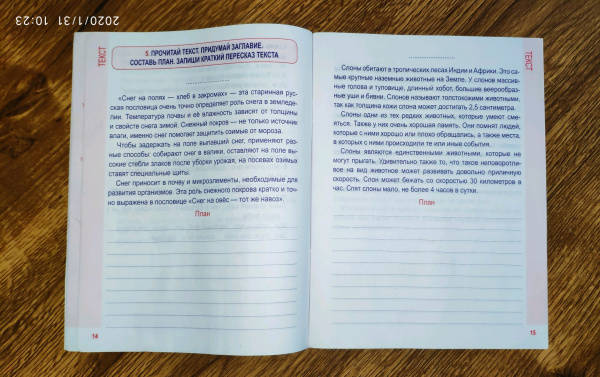 2020/1/31 10:23
ТЕКСТ
5. ПРОЧИТАЙ ТЕКСТ. ПРИДУМАЙ ЗАГЛАВИЕ.
СОСТАВЬ ПЛАН. ЗАПИШИ КРАТКИЙ ПЕРЕСКАЗ ТЕКСТА
«Снег на полях — хлеб в закромах» — эта старинная рус-
ская пословица очень точно определяет роль снега в земледе-
лии. Температура почвы и её влажность зависят от толщины
и свойств снега зимой. Снежный покров — не только источник
влаги, именно снег помогает защитить озимые от мороза.
Чтобы задержать на поле выпавший снег, применяют раз-
ные способы: собирают снег в валики, оставляют на поле вы-
сокие стебли злаков после уборки урожая, на посевах озимых
ставят специальные щиты.
Снег приносит в почву и микроэлементы, необходимые для
развития организмов. Эта роль снежного покрова кратко и точ-
но выражена в пословице «Снег на овёс — тот же навоз».
План
14
ТЕКСТ
Слоны обитают в тропических лесах Индии и Африки. Это са-
мые крупные наземные животные на Земле. У слонов массив-
ные голова и туловище, длинный хобот, большие веерообраз-
ные уши и бивни. Слонов называют толстокожими животными,
так как толщина кожи слона может достигать 2,5 сантиметра.
Слоны одни из тех редких животных, которые умеют сме-
яться. Также у них очень хорошая память. Они помнят людей,
которые с ними хорошо или плохо обращались, а также места,
в которых с ними происходили те или иные события.
Слоны являются единственными животными, которые не
могут прыгать. Удивительно также то, что такое неповоротли-
вое на вид животное может развивать довольно приличную
скорость. Слон может бежать со скоростью 30 километров в
час. Спят слоны мало, не более 4 часов в сутки.
План
15